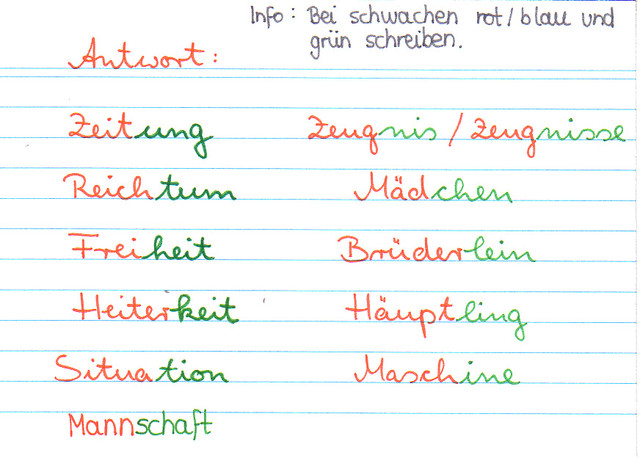 Info: Bei schwachen rot/blau und
grün schreiben.
Antwort:
Zeitung Zeugnis / Zeugnisse
Reichtum Mädchen
Freiheit Brüderlein
Heiterkeit Häuptling
Situation Maschine
Mannschaft